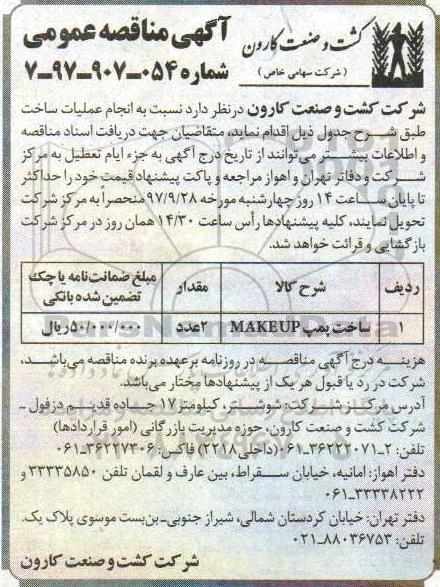 کشت و صنعت کارون
( شرکت سهامی خاص )
آگهی مناقصه عمومی
شماره ۰۵۴-۹۰۷-۹۷-۷
شرکت کشت و صنعت کارون درنظر دارد نسبت به انجام عملیات ساخت
طبق شرح جدول ذیل اقدام نماید، متقاضیان جهت دریافت اسناد مناقصه
و اطلاعات بیشتر می‌توانند از تاریخ درج آگهی به جزء ایام تعطیل به مرکز
شرکت و دفاتر تهران و اهواز مراجعه و پاکت پیشنهاد قیمت خود را حداکثر
تا پایان ساعت ۱۴ روز چهارشنبه مورخه ۹۷/۹/۲۸ منحصراً به مرکز شرکت
تحویل نمایند، کلیه پیشنهادها رأس ساعت ۱۴/۳۰ همان روز در مرکز شرکت
بازگشایی و قرائت خواهد شد.
ردیف شرح کالا مقدار مبلغ ضمانت‌نامه یا چک تضمین شده بانکی
۱ ساخت پمپ MAKEUP ۲عدد ۵۰/۰۰۰/۰۰۰ریال
هزینه درج آگهی مناقصه در روزنامه برعهده برنده مناقصه می‌باشد،
شرکت در رد یا قبول هر یک از پیشنهادها مختار می‌باشد.
آدرس مرکز شرکت: شوشتر، کیلومتر ۱۷ جاده قدیم دزفول -
شرکت کشت و صنعت کارون، حوزه مدیریت بازرگانی (امور قراردادها)
تلفن: ۲-۳۶۲۲۲۰۷۱-۰۶۱(داخلی۲۲۱۸) فاکس: ۳۶۲۲۷۳۰۶-۰۶۱
دفتر اهواز: امانیه، خیابان سقراط، بین عارف و لقمان تلفن ۳۳۳۳۵۸۵۰ و
۳۳۳۳۸۲۲۲-۰۶۱
دفتر تهران: خیابان کردستان شمالی، شیراز جنوبی-بن‌بست موسوی پلاک یک.
تلفن: ۸۸۰۳۶۷۵۳-۰۲۱
شرکت کشت و صنعت کارون